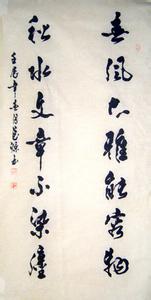 春風大雅能容物
秋水文章不染塵
壬辰年春月書